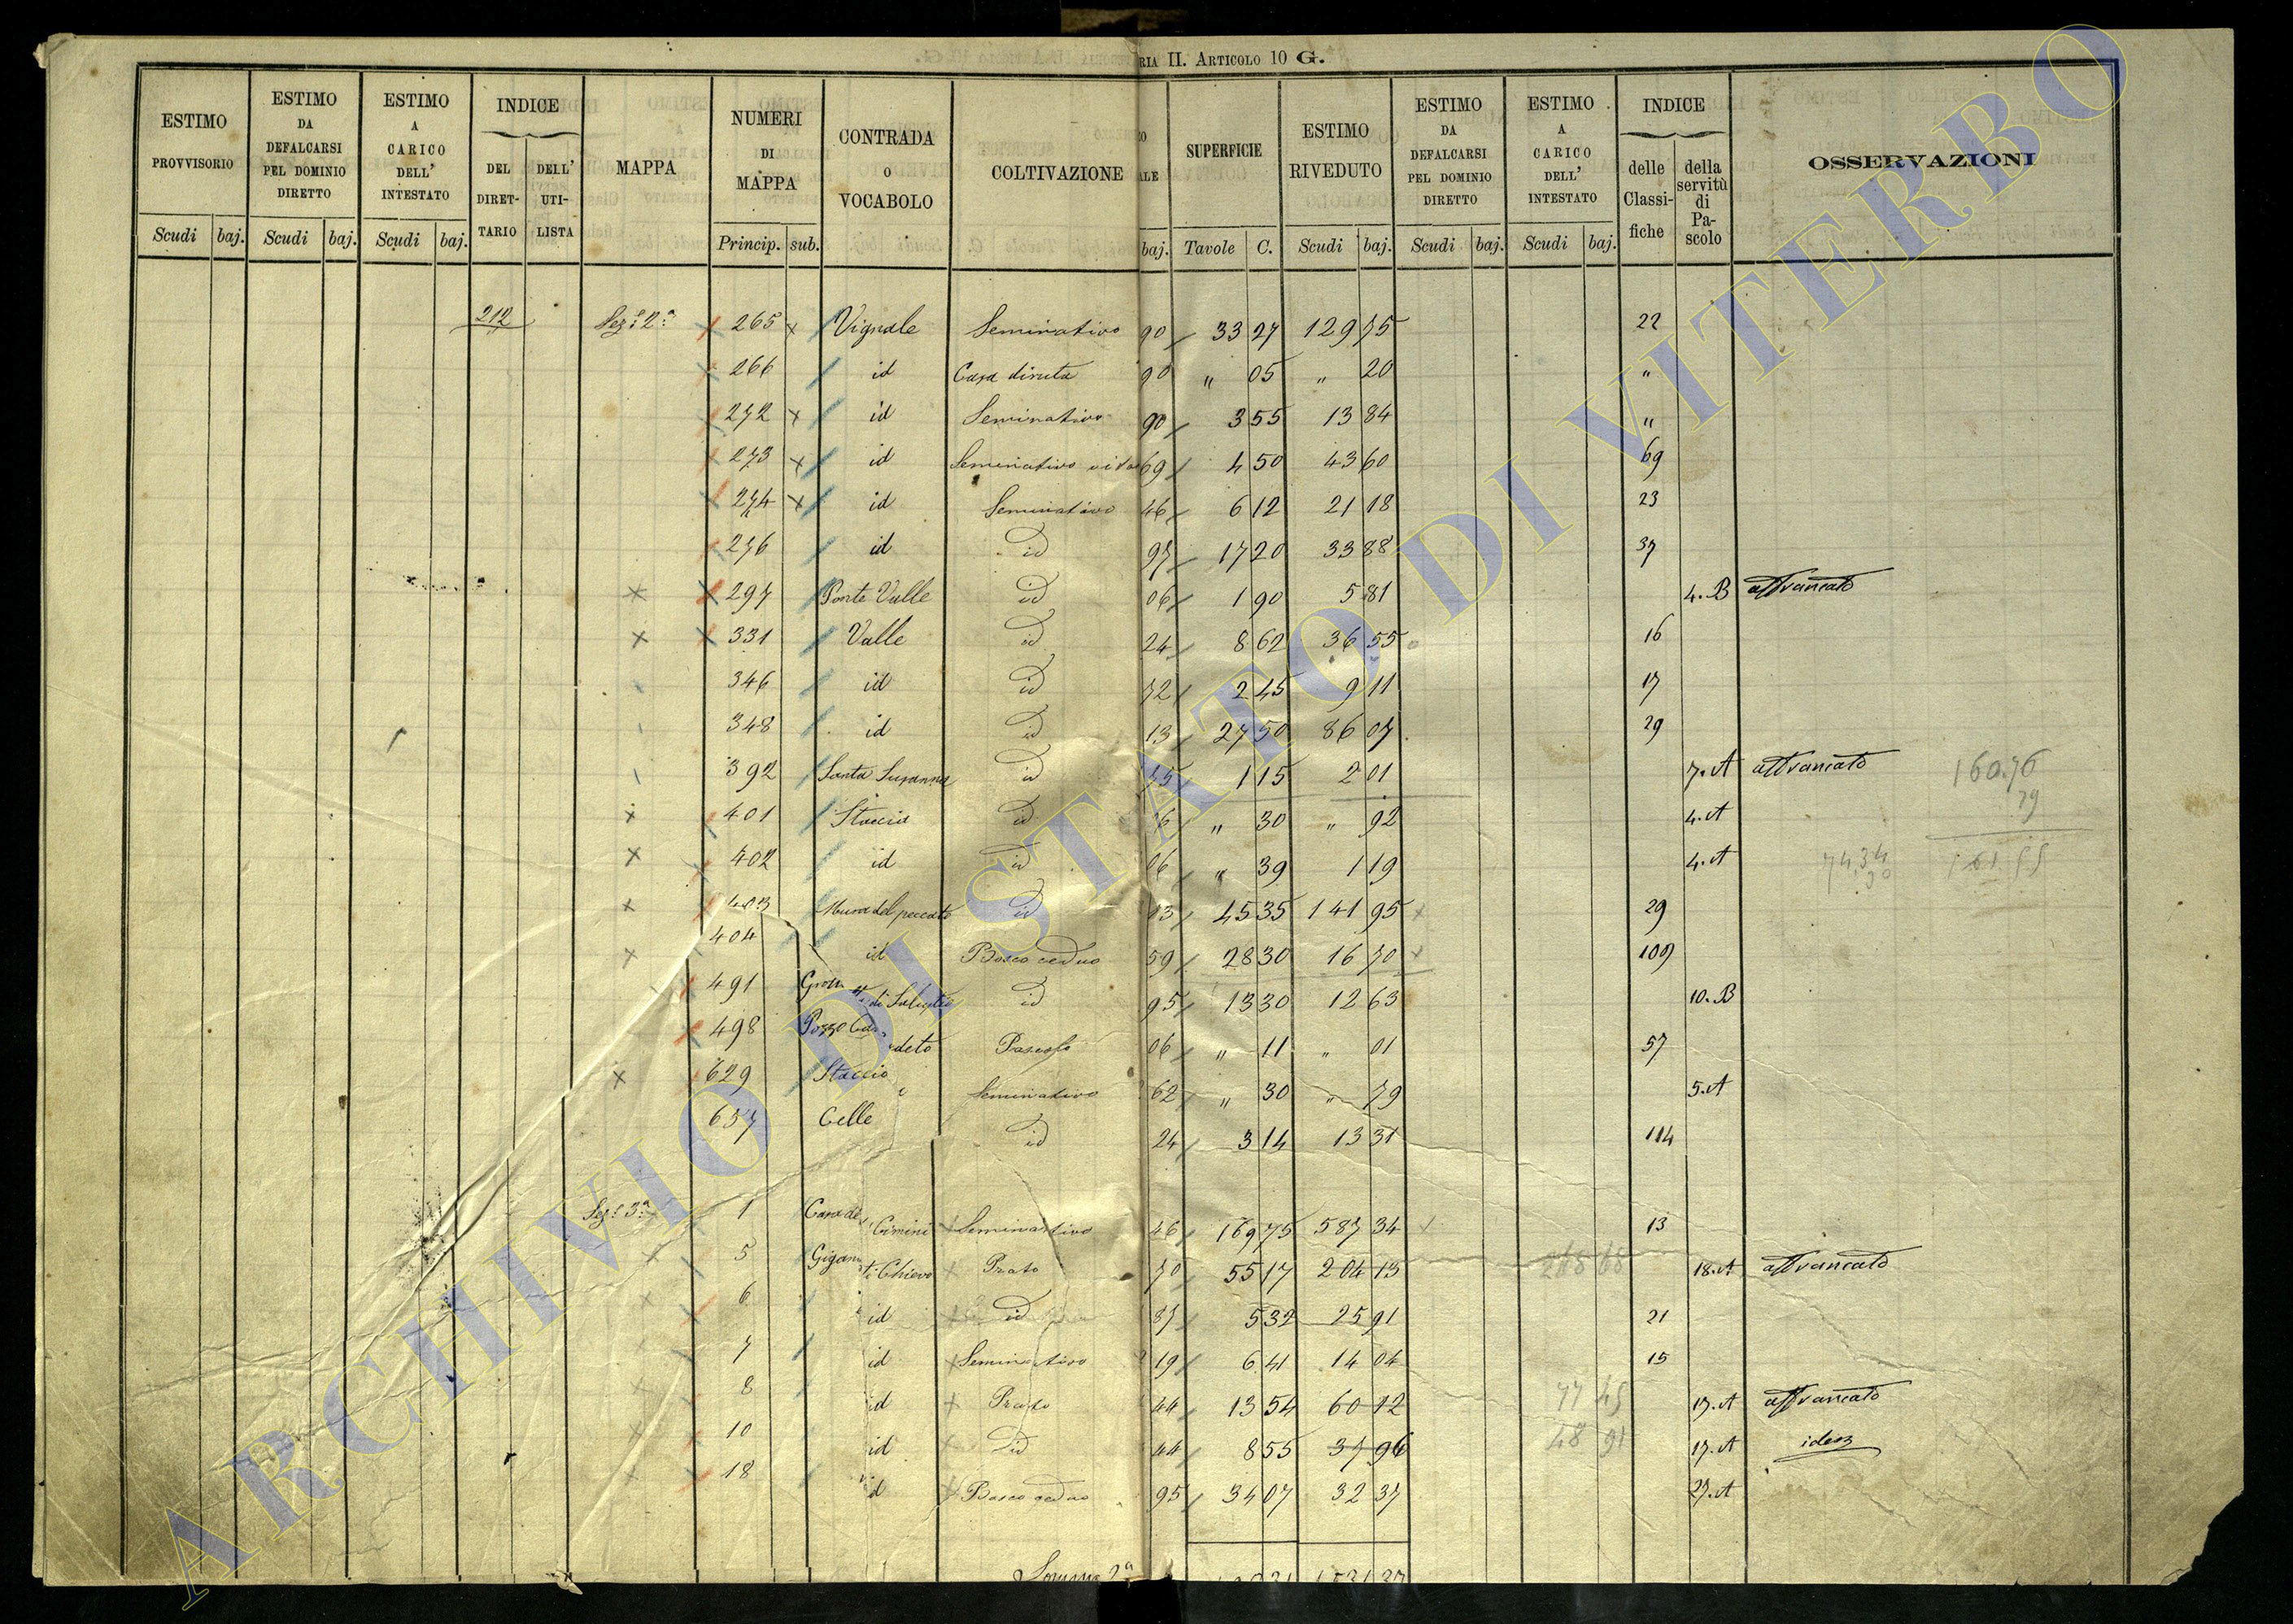 RIA II. ARTICOLO 10 G.
ESTIMO PROVVISORIO
ESTIMO DA DEFALCARSI PEL DOMINIO DIRETTO
ESTIMO A CARICO DELL' INTESTATO
INDICE
DEL DIRETTARIO
DELL' UTILISTA
MAPPA
NUMERI DI MAPPA
CONTRADA O VOCABOLO
COLTIVAZIONE
SUPERFICIE
ESTIMO RIVEDUTO
ESTIMO DA DEFALCARSI PEL DOMINIO DIRETTO
ESTIMO A CARICO DELL' INTESTATO
INDICE
delle Classifiche
della servitù di Pascolo
OSSERVAZIONI
Scudi baj. Scudi baj. Scudi baj. Princip. sub. baj. Tavole C. Scudi baj. Scudi baj. Scudi baj.
212 Sez.e 2.a 265 x Vignale Seminativo 90 33 27 129 75 22
266 id Casa diruta 90 " 05 " 20 "
272 x id Seminativo 90 3 55 13 84 "
273 x id Seminativo vitato 69 4 50 43 60 69
274 x id Seminativo 46 6 12 21 18 23
276 id id 97 17 20 33 88 37
x 297 Ponte Valle id 06 1 90 5 81 4.B affrancato
x 331 Valle id 24 8 62 36 55 16
346 id id 72 2 45 9 11 17
348 id id 13 27 50 86 07 29
392 Santa Susanna id 75 1 15 2 01 7.A affrancato 160.76
x 401 Staccia id 6 " 30 " 92 4.A 79
x 402 id id 06 " 39 1 19 4.A 74,34 161 55
x 403 id 13 45 35 141 95 29
x 404 id Bosco ceduo 59 28 30 16 70 109
491 id 95 13 30 12 63 10.B
498 Pascolo 06 " 11 " 01 57
x 629 Staccia Seminativo 62 " 30 " 79 5.A
657 Celle id 24 3 14 13 31 114
Sez.e 3.a 1 Casa de Cimini Seminativo 46 169 75 587 34 13
5 Prato 70 55 17 204 13 18.A affrancato
6 id id 87 5 32 25 91 21
7 id Seminativo 19 6 41 14 04 15
8 id Prato 44 13 54 60 12 77 45 17.A affrancato
10 id id 44 8 55 37 96 48 91 17.A idem
18 id Bosco ceduo 95 34 07 32 37 27.A
Somma 2a
ARCHIVIO DI STATO DI VITERBO